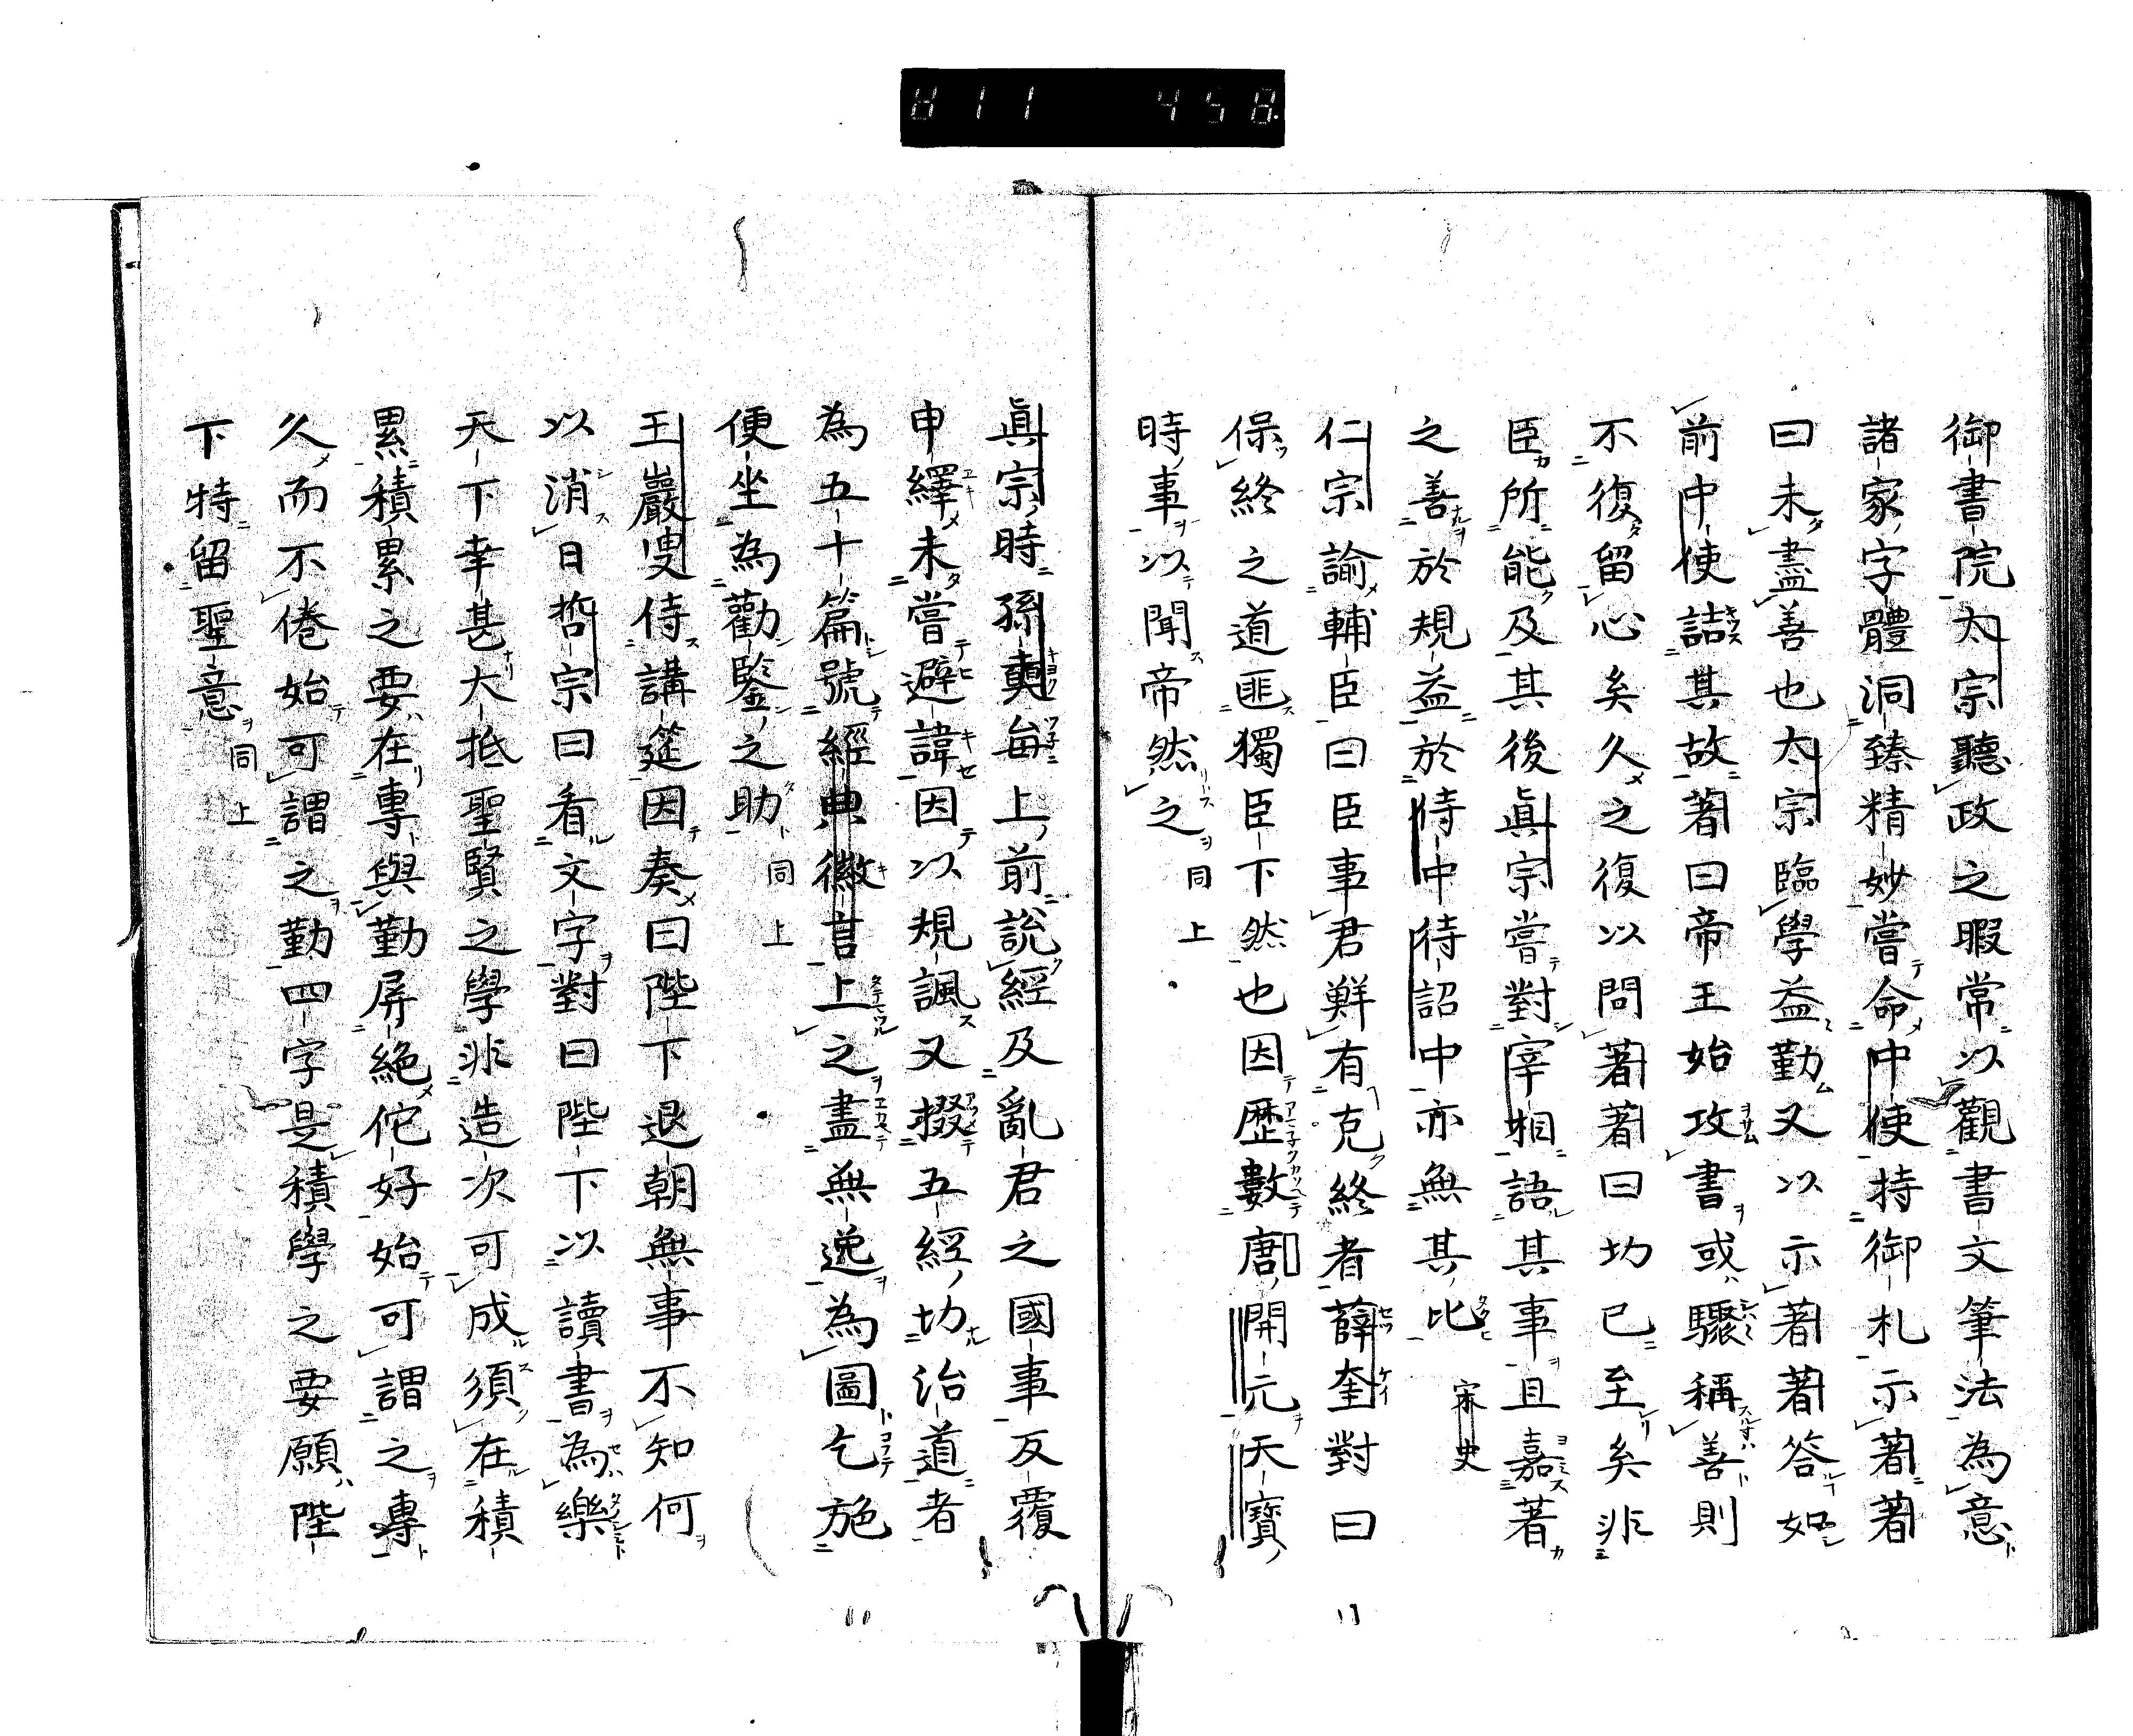 811 458
御書院太宗聽政之暇常以觀書文筆法為意
諸家字體洞臻精妙嘗命中使持御札示著著
曰未盡善也太宗臨學益勤又以示著著答如
前中使詰其故著曰帝王始攻書或驟稱善則
不復留心矣久之復以問著著曰功已至矣非
臣所能及其後眞宗嘗對宰相語其事且嘉著
之善於規益於侍中待詔中亦無其比 宋史
仁宗諭輔臣曰臣事君鮮有克終者薛奎對曰
保終之道匪獨臣下然也因歴數唐開元天寳
時事以聞帝然之 同上
眞宗時孫奭每上前說經及亂君之國事反覆
申繹未嘗避諱因以規諷又掇五經功治道者
為五十篇號經典徽言上之畫無逸為圖乞施
便坐為勸鑒之助 同上
王巖叟侍講筵因奏曰陛下退朝無事不知何
以消日哲宗曰看文字對曰陛下以讀書為樂
天下幸甚大抵聖賢之學非造次可成須在積
累積累之要在專與勤屏絕佗好始可謂之專
久而不倦始可謂之勤四字是積學之要願陛
下特留聖意 同上